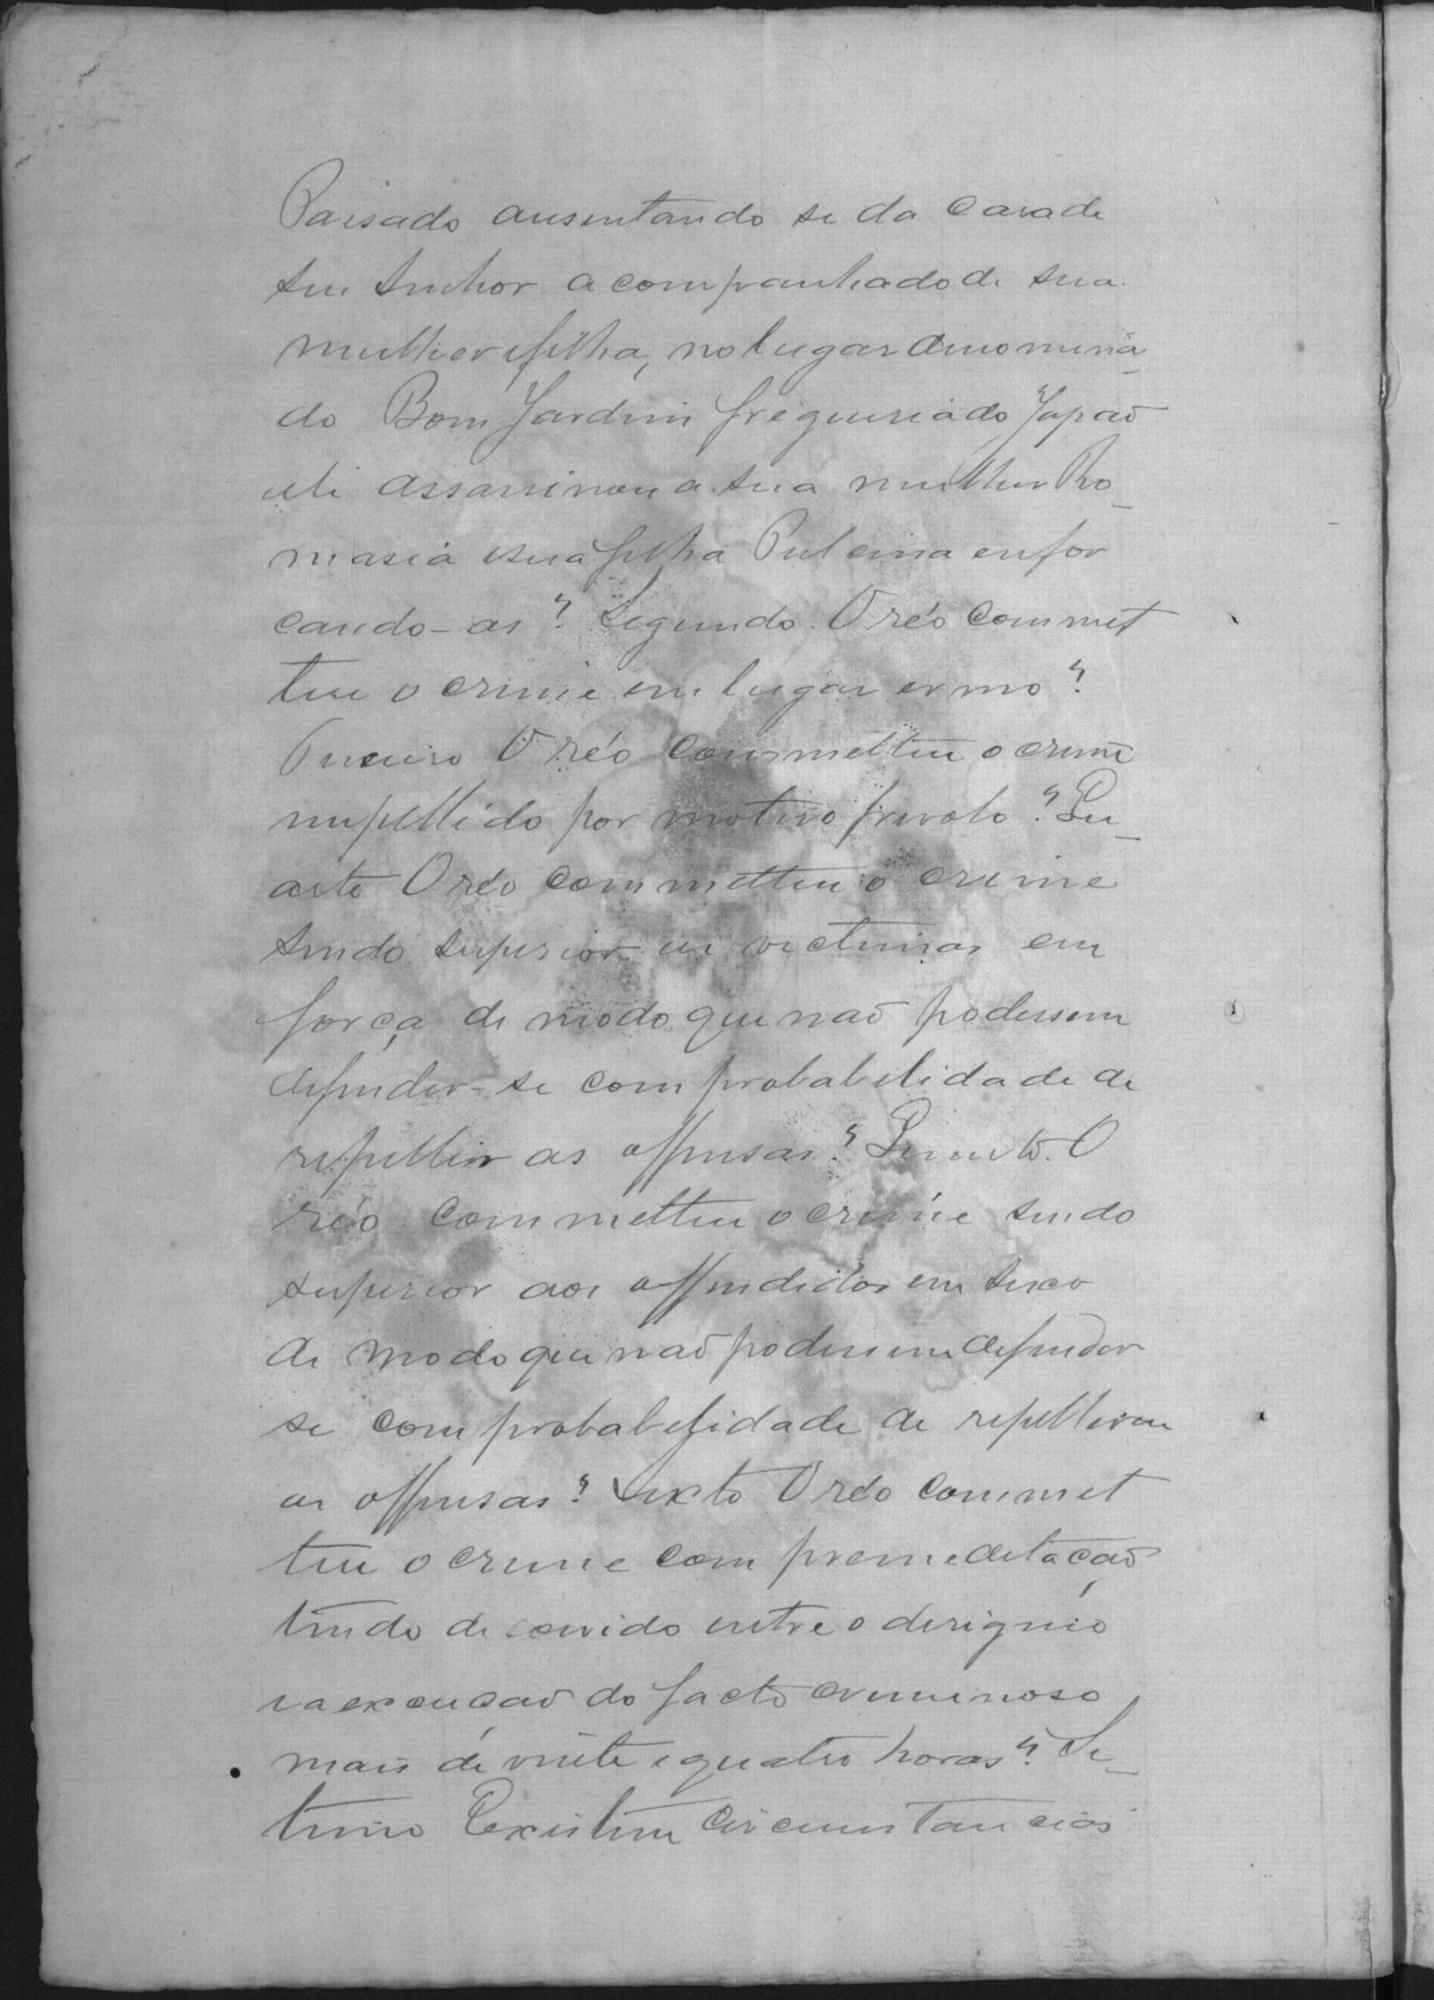 Passado ausentando se da casa de
seu senhor acompanhado de sua
mulher e filha, no lugar denomina
do Bom Jardim freguesia do Japaõ
ali assassinou a sua mulher Ro_
masia e sua filha Pulcina enfor
cando-as? Segundo. O reó commet
teu o crime em lugar ermo?
Terceiro O reó commetteu o crime
impellido por motivo frivolo? Qu_
arto O reó commetteu o crime
sendo superior as victimas em
força de modo que naõ podessem
defender-se com probabelidade de
repellir as offensas? Quinto. O
reó commetteu o crime sendo
superior aos offendidos em sexo
de modo que naõ podessem defender
se com probabelidade de repellirem
as offensas? Sexto O reó commet
teu o crime com premeditaçaõ
tendo decorrido entre o designio
e a execucaõ do facto criminoso
mais de vinte e quatro horas? Se_
timo Existem circunstancias